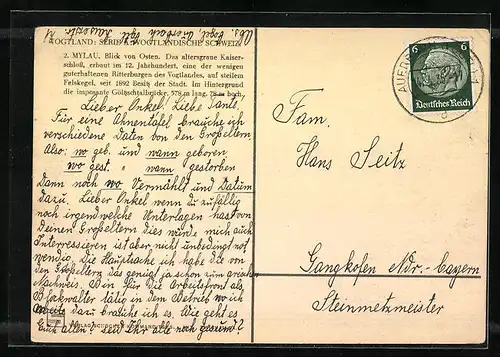 VOGTLAND: SERIE A: VOGTLÄNDISCHE SCHWEIZ
2. MYLAU, Blick von Osten. Das altersgraue Kaiser-
schloß, erbaut im 12. Jahrhundert, eine der wenigen
guterhaltenen Ritterburgen des Vogtlandes, auf steilem
Felskegel, seit 1892 Besitz der Stadt. Im Hintergrund
die imposante Göltzschtalbrücke, 578 m lang, 78 m hoch.
Lieber Onkel! Liebe Tante!
Für eine Ahnentafel brauche ich
verschiedene Daten von den Großeltern.
Also: wo geb. und wann geboren
wo gest. " wann gestorben
Dann noch wo Vermählt und Datum
dazu. Lieber Onkel wenn du zufällig
noch irgendwelche Unterlagen hast von
Deinen Großeltern dies würde mich auch
Interressieren ist aber nicht unbedingt not
wendig. Die Hauptsache ich habe die von
den Großeltern das genügt ja schon zum großen
Nachweis. Bin für die Arbeitsfront als
Blockwalter tätig in dem Betrieb wo ich
arbeite dazu brauche ich es. Wie geht es
Euch allen? seid Ihr alle noch gesund?
6 6
Deutsches Reich
AUERB
d
Fam.
Hans Seitz
Gangkofen Ndr.-bayern
Steinmetzmeister